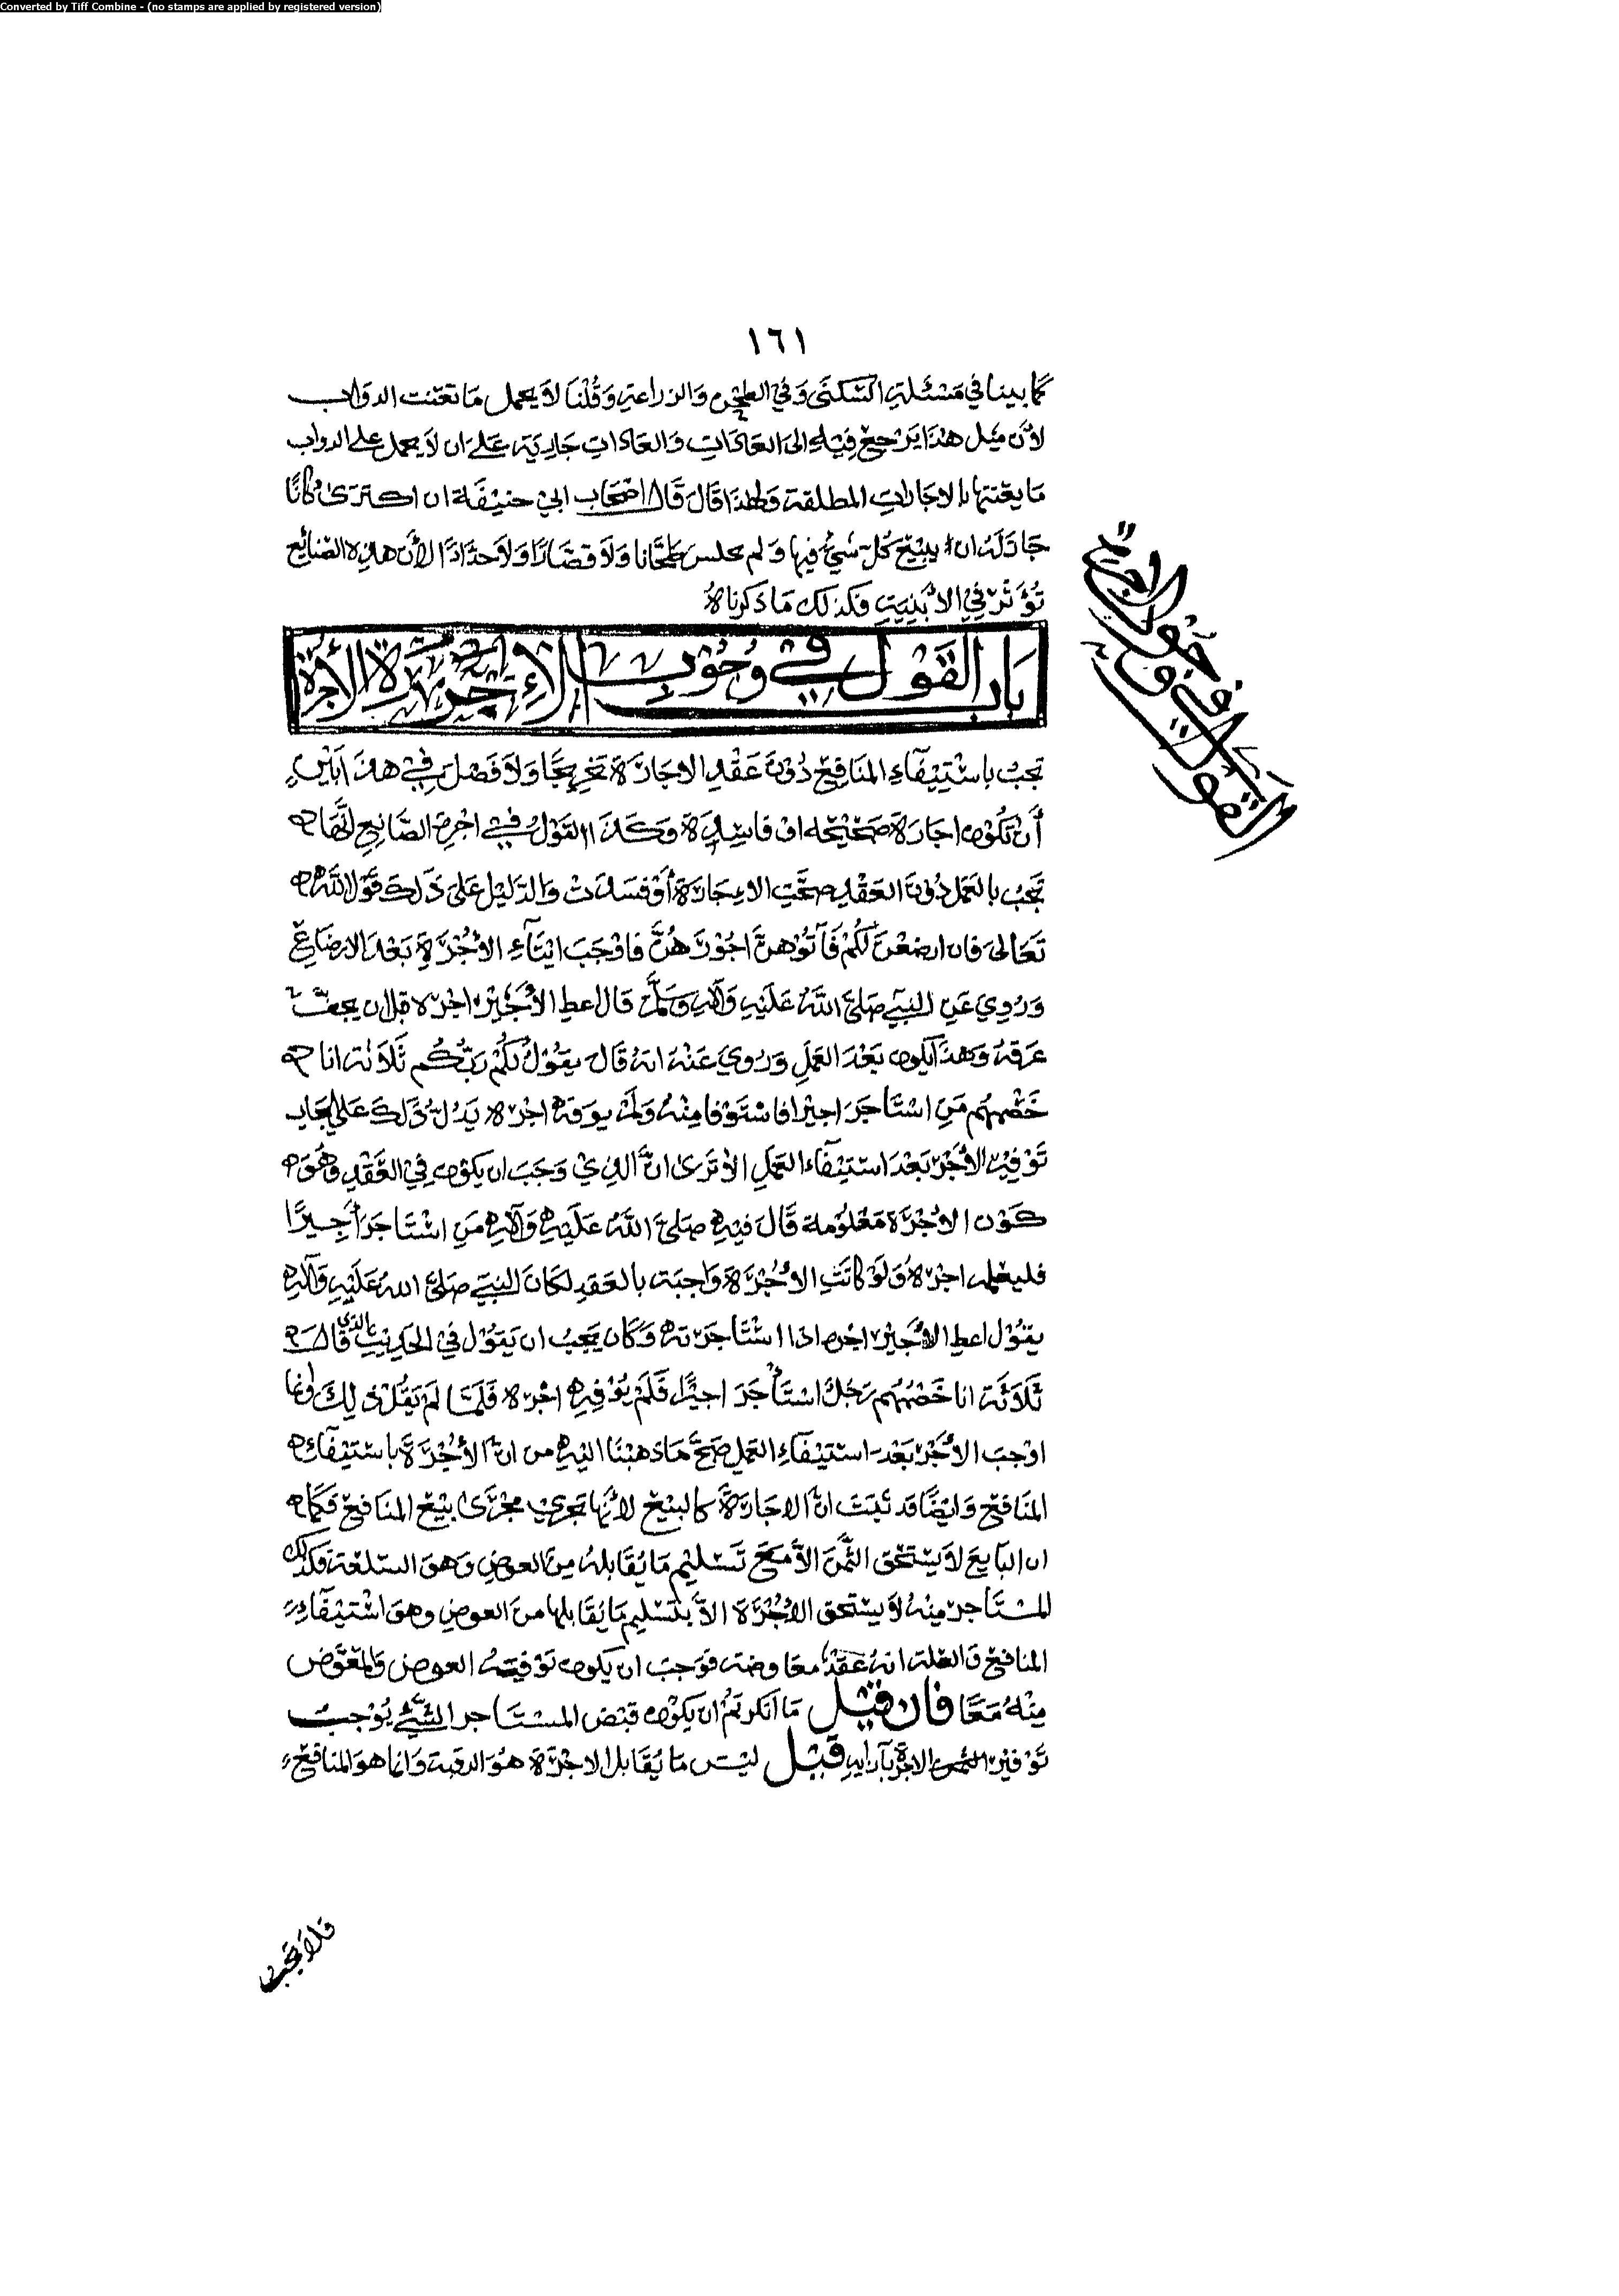 Converted by Tiff Combine - (no stamps are applied by registered version)
١٦١
كما بينا في مَسْئلةِ السّكنَى وَفي الطحن وَالزراعةِ وَقُلْنَا لاَ يحمل مَا تعنت الدوَاب
لأن مثل هٰذا يَرْجعُ فيْهِ الىَ العَادَاتِ وَالعَادَاتِ جَارِيَة عَلىَ ان لاَ يحمل على الدواب
مَا يعنتها بالاجَارَاتِ المطلقة وَلهٰذا قَالَ قَالَ اصْحَاب ابيْ حنيْفَة ان اكترَىٰ دكانًا
جَازَ لَهُ ان يبيْعَ كُلّ شيْءٍ فيها وَلم يجلس طحّانا وَلاَ قصّارًا وَلاَ حدّادًا لأنّ هذِهِ الصّنائِع
تُؤَثرُ فِيْ الأبْنِيَةِ فكذلك مَا ذكرناهُ
بَاب القَوْل في وُجُوْبِ الإجَرَة الأُجْرَة
القول في وجوب الاجرة
تجبُ باسْتِيْفَاءِ المنَافِعِ دُوْنَ عَقْدِ الاجَارَة تخريجًا وَلاَ فَصْلَ فِيْ هٰذا بَيْن
أَنْ تكُوْن اجَارَة صَحِيْحَه اوْ فَاسِدَة وَكَذَا القَوْلُ فيْ اجْرةِ الصَّانِعِ انّهَا
تجبُ بالعَمَل دُوْنَ العَقْدِ صحّتِ الاجَارَة أوْ فسَدَتْ وَالدّليْل عَلىَ ذٰلكَ قَوْل اللهُ
تَعَالىَ فان ارضعْنَ لكُمْ فآتُوْهنّ اجُوْرَهُنّ فاوْجَبَ ايْتَآءِ الأجْرَةِ بَعْدَ الارضَاعِ
وَرُوِيَ عَنِ النبيّ صَلىَّ اللهُ عَلَيْهِ وَآلهِ وَسَلّم قال اعطِ الأجيْرَ اجْرَه قبل ان يجفّ
عَرَقهُ وَهٰذا يكون بَعْدَ العَمَلِ وَرُوِيَ عَنْهُ انهُ قَال يقُوْلُ لكُمْ رَبُّكُم ثَلاَثة انا
خَصْمهُم مَنِ اسْتَاجَرَ اجيْرًا فاسْتَوْفا منْهُ وَلمْ يوَفهِ اجْرَه يَدُلّ ذٰلكَ عَلىَ ايجَاب
تَوْفِيْر الأجْر بَعْدَ استيْفَاء العَمَلِ الاَ تَرَىٰ انَّ الذِيْ وَجَبَ ان يكوْن فِيْ العَقْدِ وَهُوَ
كَوْن الأجْرَة مَعْلُوْمة قَالَ فيْهِ صَلىَّ اللهُ عَلَيْهِ وَآلهِ مَنِ اسْتَاجَرَ أجِيْرًا
فليعْلمه اجْرَهُ وَلَوْ كانَتِ الأجْرَة وَاجبَة بالعَقدِ لكَانَ النبيّ صَلىَّ اللهُ عَلَيْهِ وَآلهِ
يقُوْل اعطِ الأجيْرَ اجْره اذا اسْتَاجَرْته وَكَان يَجبُ ان يَقوْل فيْ الحَدِيْثِ الذي قَال
ثَلاَثَة انا خَصْمُهُم رَجُل اسْتَأجَرَ اجيْرًا فَلَمْ يُوْفِيهِ اجْرَه فَلَمّا لمْ يَقُلْ ذٰلكَ وَانما
اوْجبَ الأجْر بَعْدَ استيْفَاءِ العَمَل صَحّ مَا ذهبْنَا اليْهِ من انّ الأجْرَة باستيْفَاءِ
المنَافِع وَايْضًا قد ثَبَتَ انّ الاجَارَة كالبيْع لأنّها تجري مجْرَىٰ بيْع المنَافِعِ فَكَما
ان البَايِعَ لاَ يسْتَحق الثّمَنَ الاَّ مَعَ تَسْليْم مَا يُقَابلهُ مِنَ العوض وَهوَ السّلْعَة وَكذٰلك
المستَاجَر منْهُ لاَ يستحق الأجْرَة الاَّ بتَسْليم مَا يُقَابلها منَ العوض وهوَ اسْتيْفَاءِ
المنَافِع وَالعلة انهُ عَقْدُ معَاوضه فوَجبَ ان يكون تَوْفيَهُ العوض وَالمعَوّض
مِنْهُ مَعًا فان قيْل مَا انكرتمُ ان يكوْن قبْض المستَاجر الشّيْءَ يُوْجبُ
تَوْفيْر الاجْرَة قيْل ليْسَ مَا يُقَابل الاجْرَة هُوَ الرقبَة وَانما هوَ المنَافِع
فلا تجب